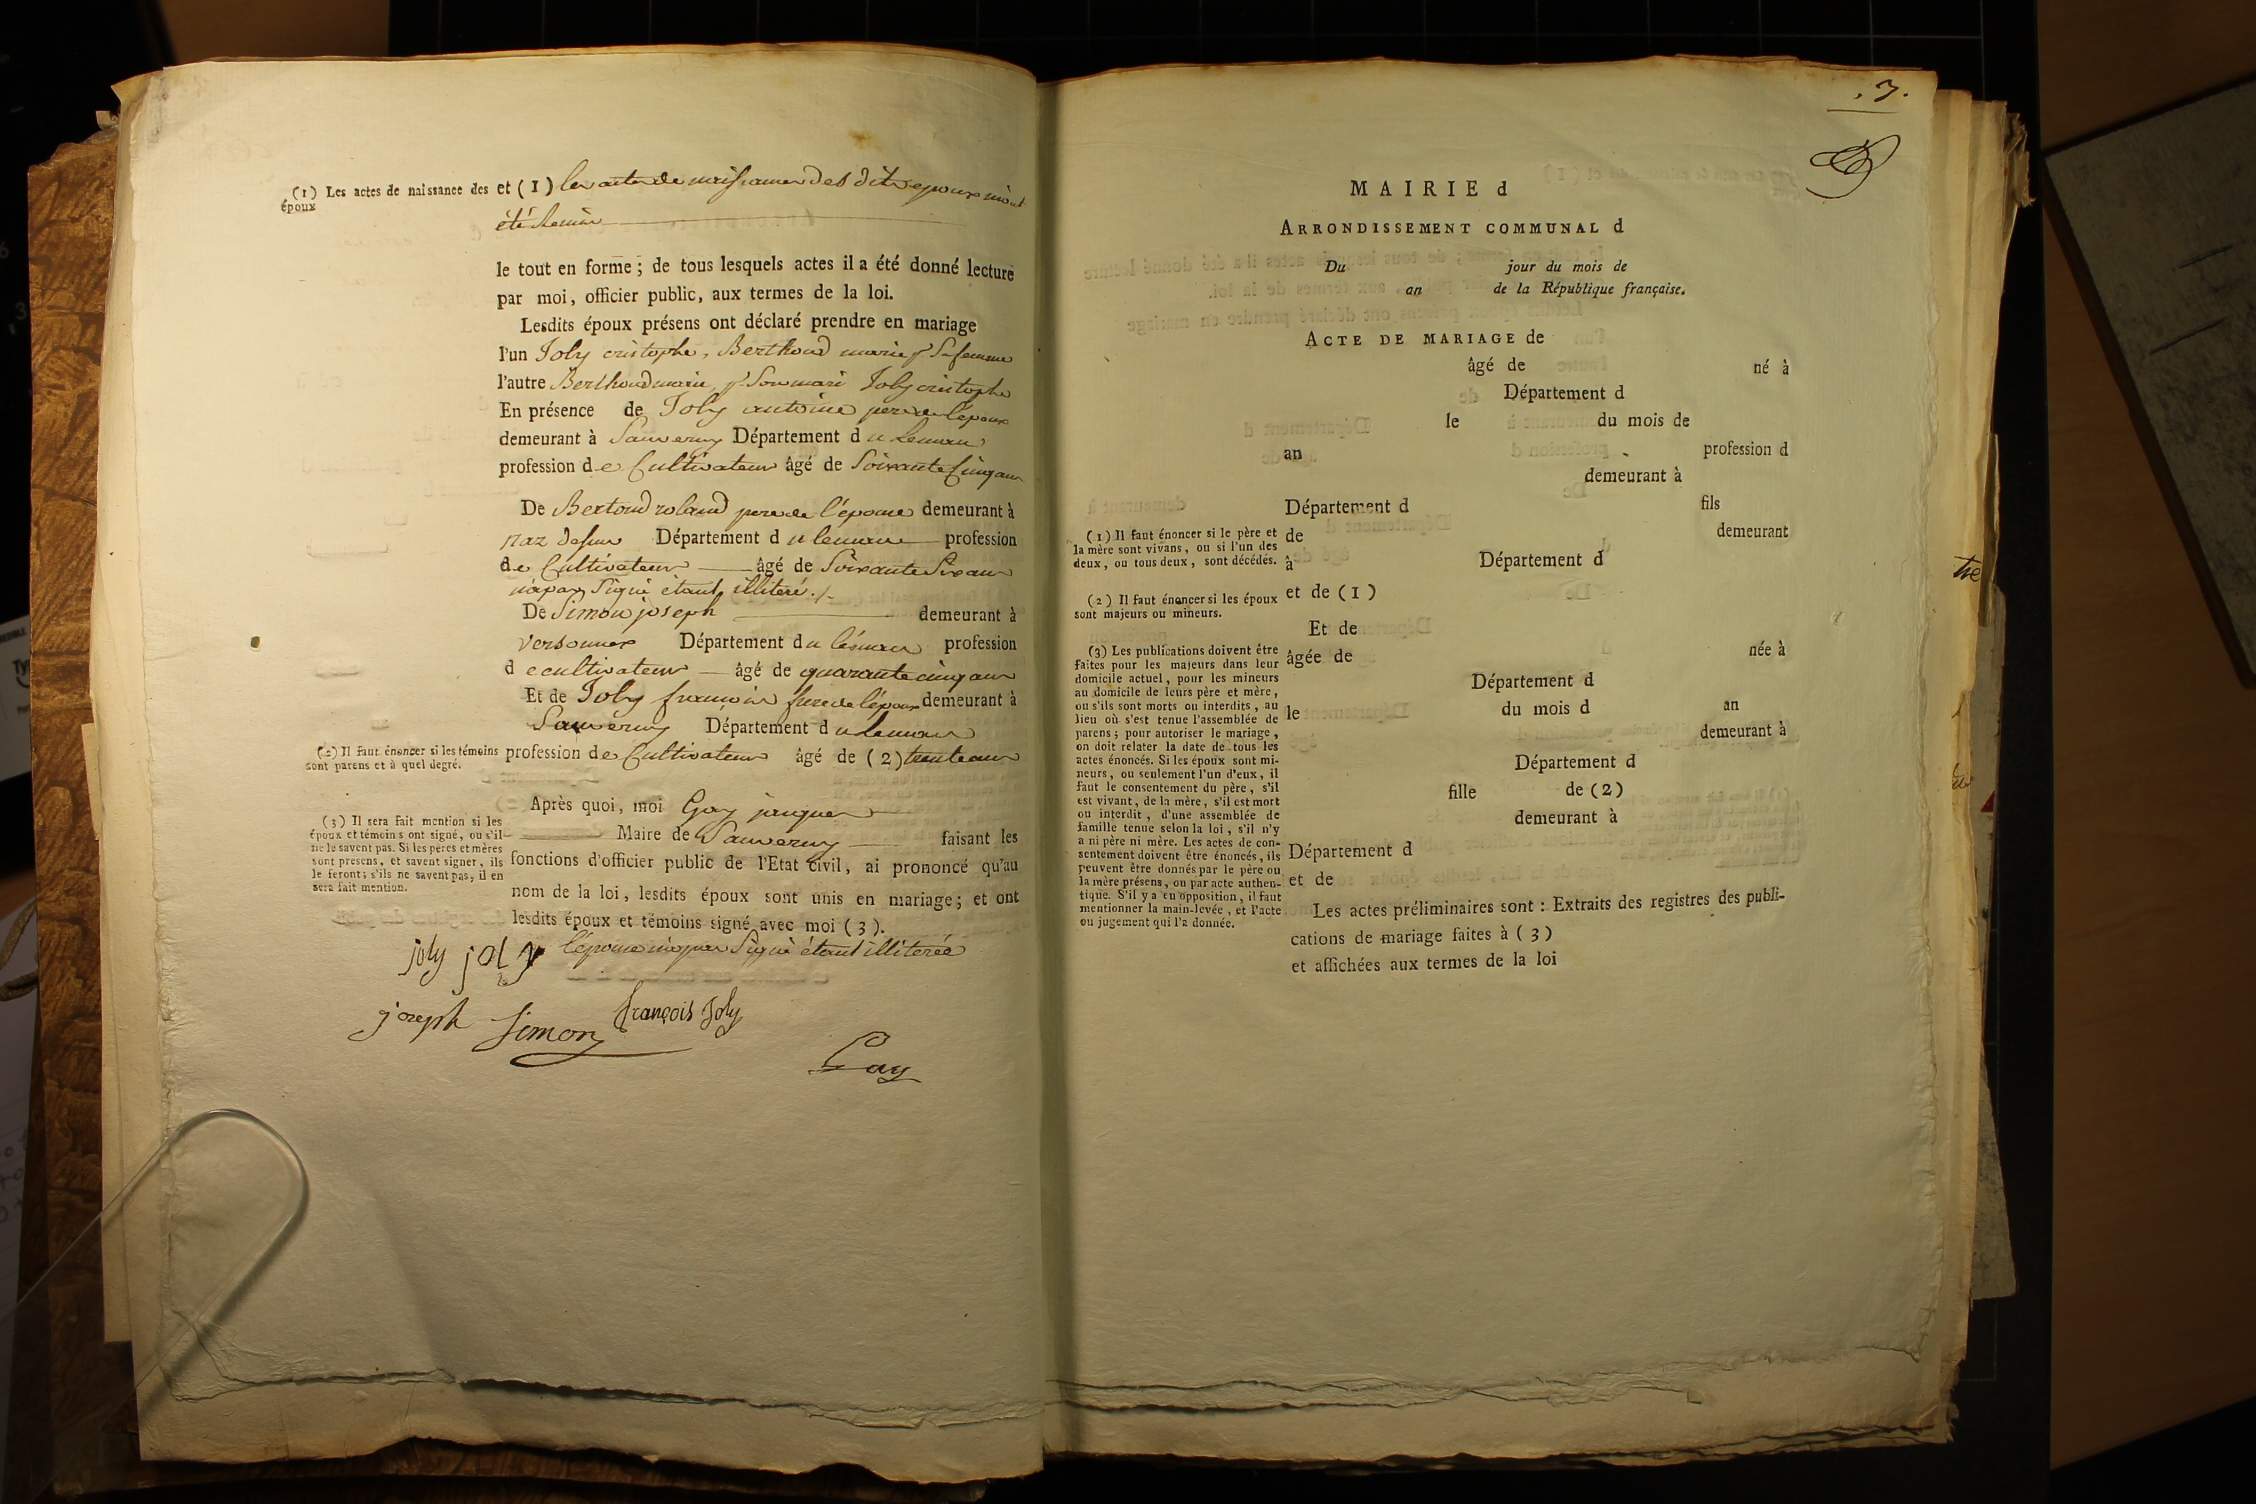 (1) Les actes de naissance des
époux
et (1) les actes de naissances des dits epoux m'ont
été Remis
le tout en forme; de tous lesquels actes il a été donné lecture
par moi, officier public, aux termes de la loi.
Lesdits époux présens ont déclaré prendre en mariage
l'un Joly cristophe, Berthoud marie pr Sa femme
l'autre Berthoud marie, pr Son mari Joly cristophe
En présence de Joly antoine pere de l'époux
demeurant à Sauverny Département du Leman
profession de Cultivateur âgé de Soixante Cinq ans
De Bertoud roland pere de l'épouse demeurant à
naz dessus Département du leman profession
de Cultivateur âgé de Soixante Six ans
n'a pas Signé étant illiteré./.
De Simon joseph demeurant à
versonnex Département du léman profession
de cultivateur âgé de quarante cinq ans
Et de Joly francois frere de l'époux demeurant à
Sauverny Département du Leman
(2) Il faut énoncer si les témoins
sont parens et à quel degré.
profession de Cultivateur âgé de (2) trente ans
Après quoi, moi Gay jacques
Maire de Sauverny faisant les
fonctions d'officier public de l'Etat civil, ai prononcé qu'au
nom de la loi, lesdits époux sont unis en mariage; et ont
lesdits époux et témoins signé avec moi (3).
(3) Il sera fait mention si les
époux et témoins ont signé, ou s'il
ne le savent pas. Si les pères et mères
sont présens, et savent signer, ils
le feront; s'ils ne savent pas, il en
sera fait mention.
joly joly l'épouse n'a pas Signé étant illiterée
joseph Simon françois Joly
Gay
MAIRIE d
ARRONDISSEMENT COMMUNAL d
Du jour du mois de
an de la République française.
ACTE DE MARIAGE de
âgé de né à
Département d
le du mois de
an profession d
demeurant à
Département d fils
de demeurant
à Département d
et de (1)
Et de
âgée de née à
Département d
le du mois d an
demeurant à
Département d
fille de (2)
demeurant à
Département d
et de
Les actes préliminaires sont : Extraits des registres des publi-
cations de mariage faites à (3)
et affichées aux termes de la loi
(1) Il faut énoncer si le père et
la mère sont vivans, ou si l'un des
deux, ou tous deux, sont décédés.
(2) Il faut énoncer si les époux
sont majeurs ou mineurs.
(3) Les publications doivent être
faites pour les majeurs dans leur
domicile actuel, pour les mineurs
au domicile de leurs père et mère,
ou s'ils sont morts ou interdits, au
lieu où s'est tenue l'assemblée de
parens; pour autoriser le mariage,
on doit relater la date de tous les
actes énoncés. Si les époux sont mi-
neurs, ou seulement l'un d'eux, il
faut le consentement du père, s'il
est vivant, de la mère, s'il est mort
ou interdit, d'une assemblée de
famille tenue selon la loi, s'il n'y
a ni père ni mère. Les actes de con-
sentement doivent être énoncés, ils
peuvent être donnés par le père ou
la mère présens, ou par acte authen-
tique. S'il y a eu opposition, il faut
mentionner la main-levée, et l'acte
ou jugement qui l'a donnée.